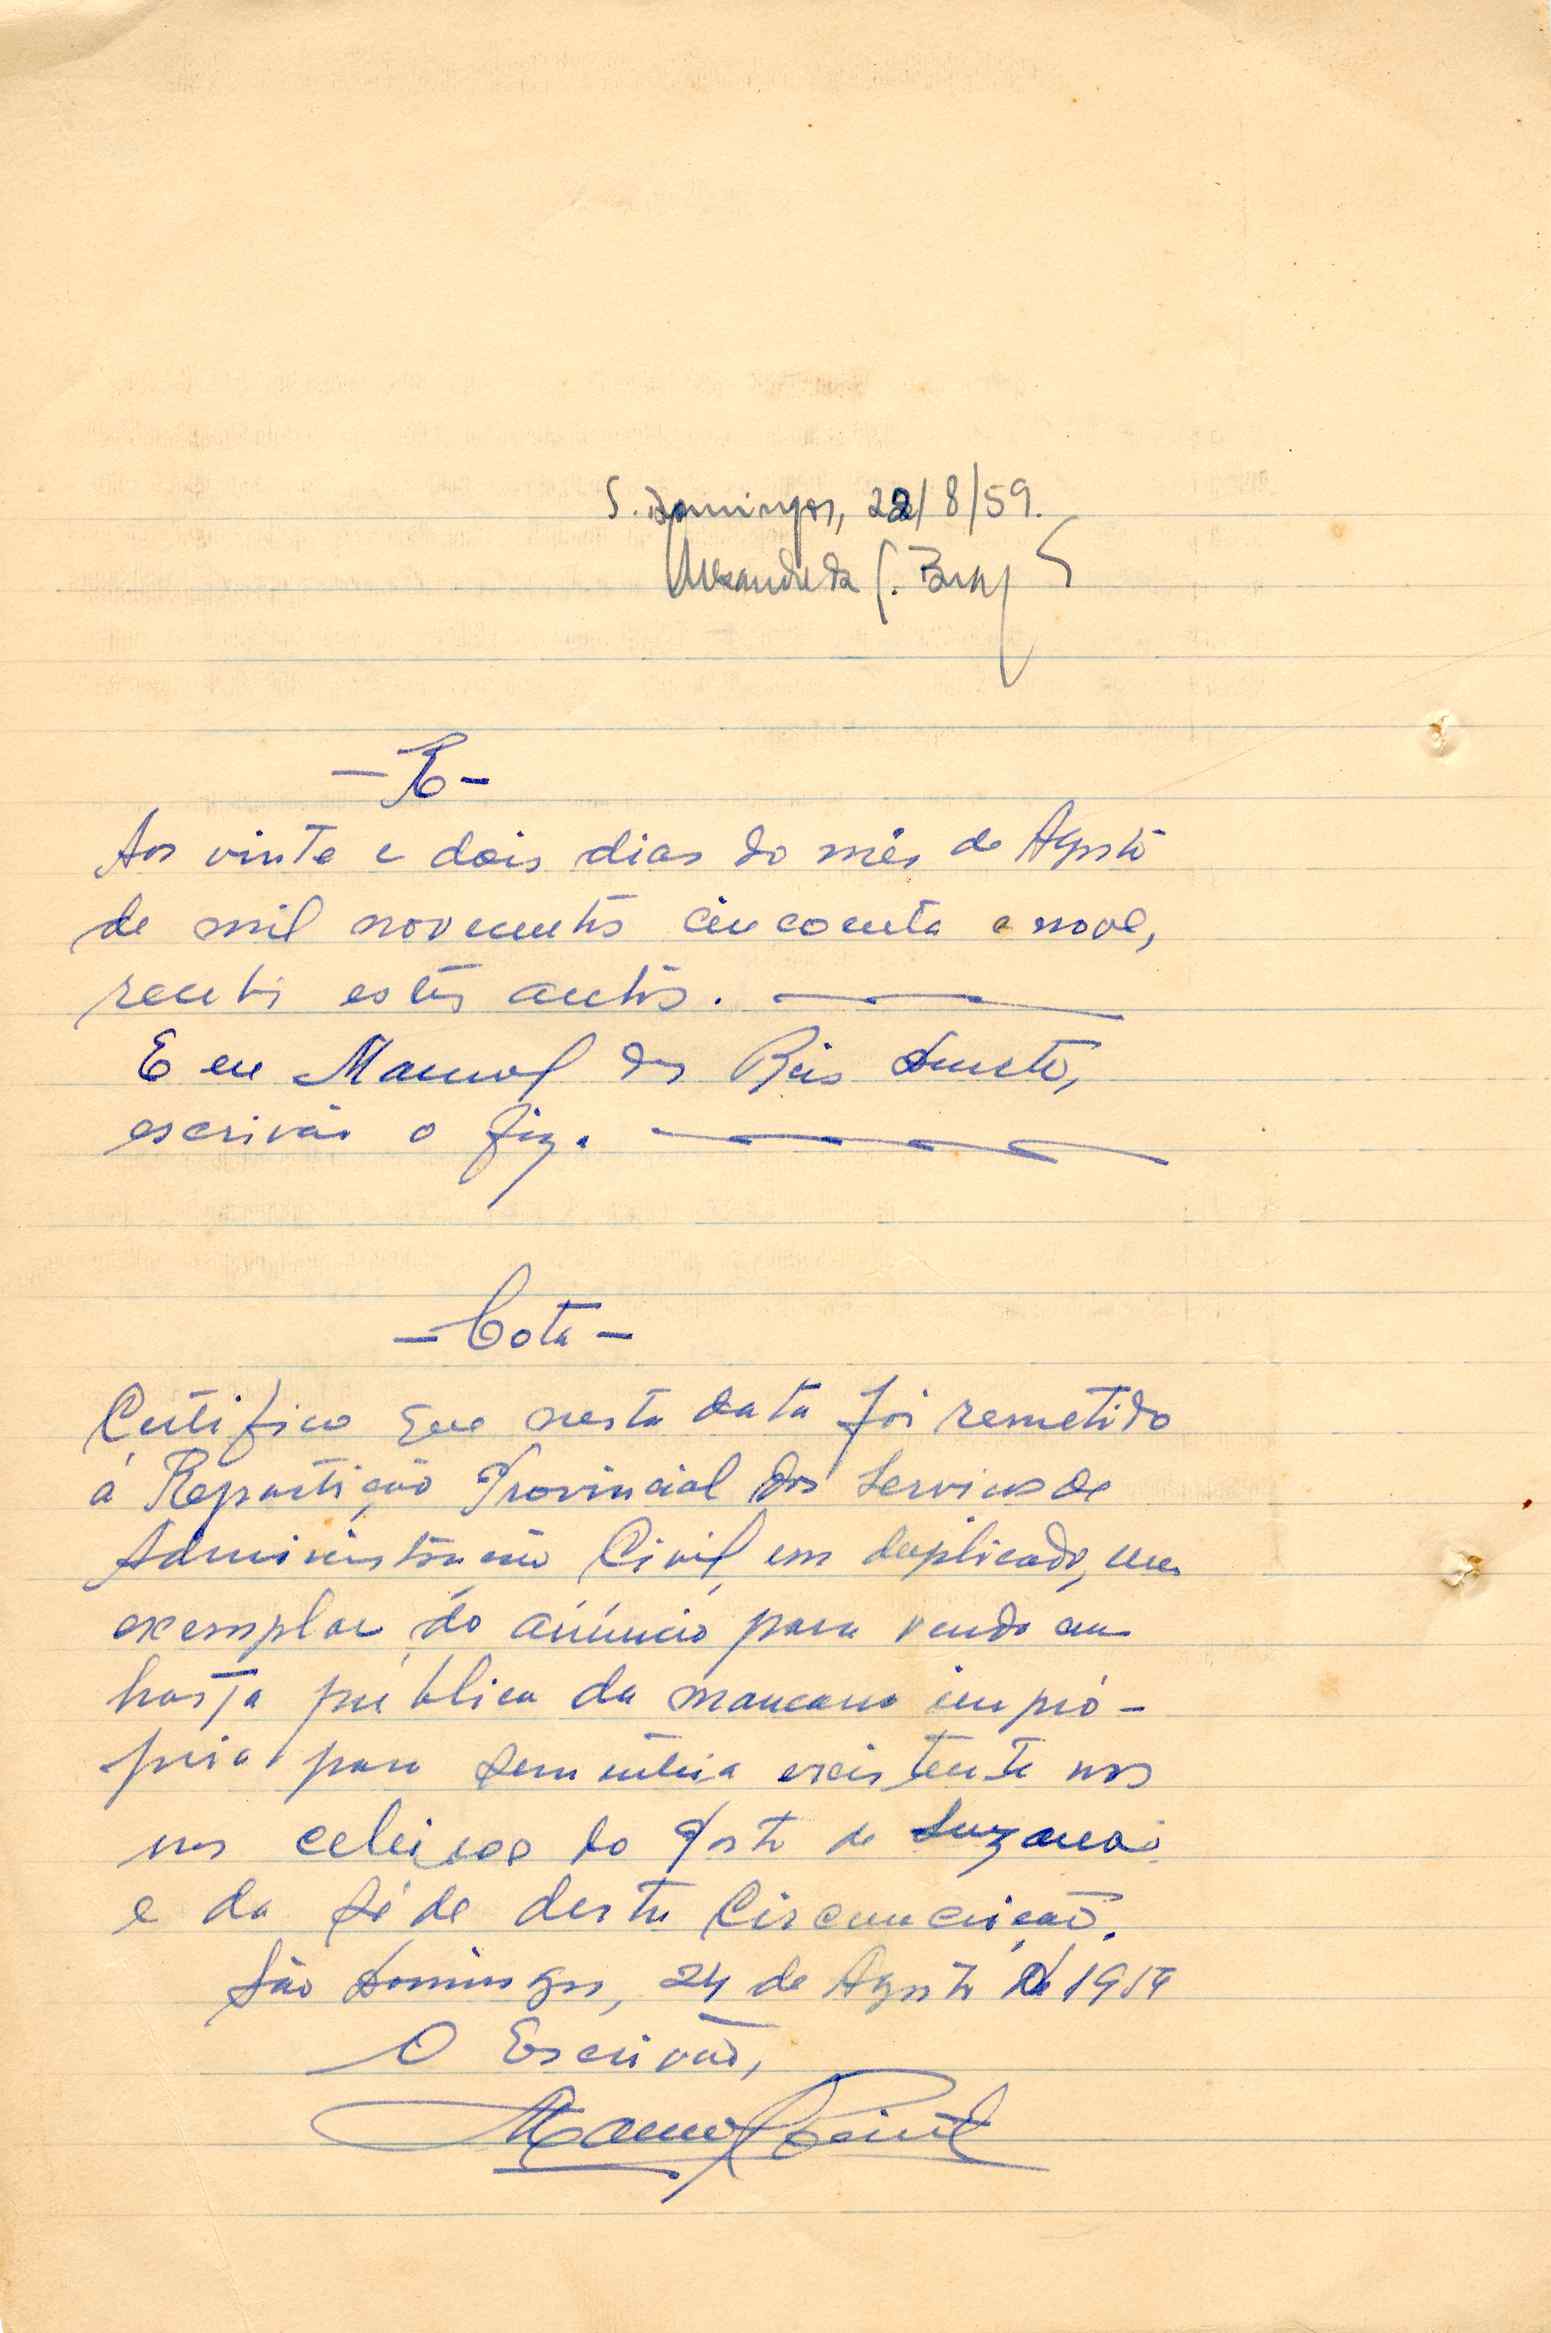 S. Domingos, 22/8/59.
- R -
Aos vinte e dois dias do mês de Agosto
de mil novecentos cincoenta e nove,
recebi estes autos.
E eu Manuel dos Reis
escrivão o fiz.
- Cota -
Certifico que nesta data foi remetido
á Repartição Provincial dos Serviços de
Administração Civil, em duplicado, um
exemplar do anúncio para venda em
hasta pública da mancarra impró-
pria para sementeira existente nos
nos celeiros do Posto de Suzana
e da séde desta Circunscrição.
São Domingos, 24 de Agosto de 1959
O Escrivão,